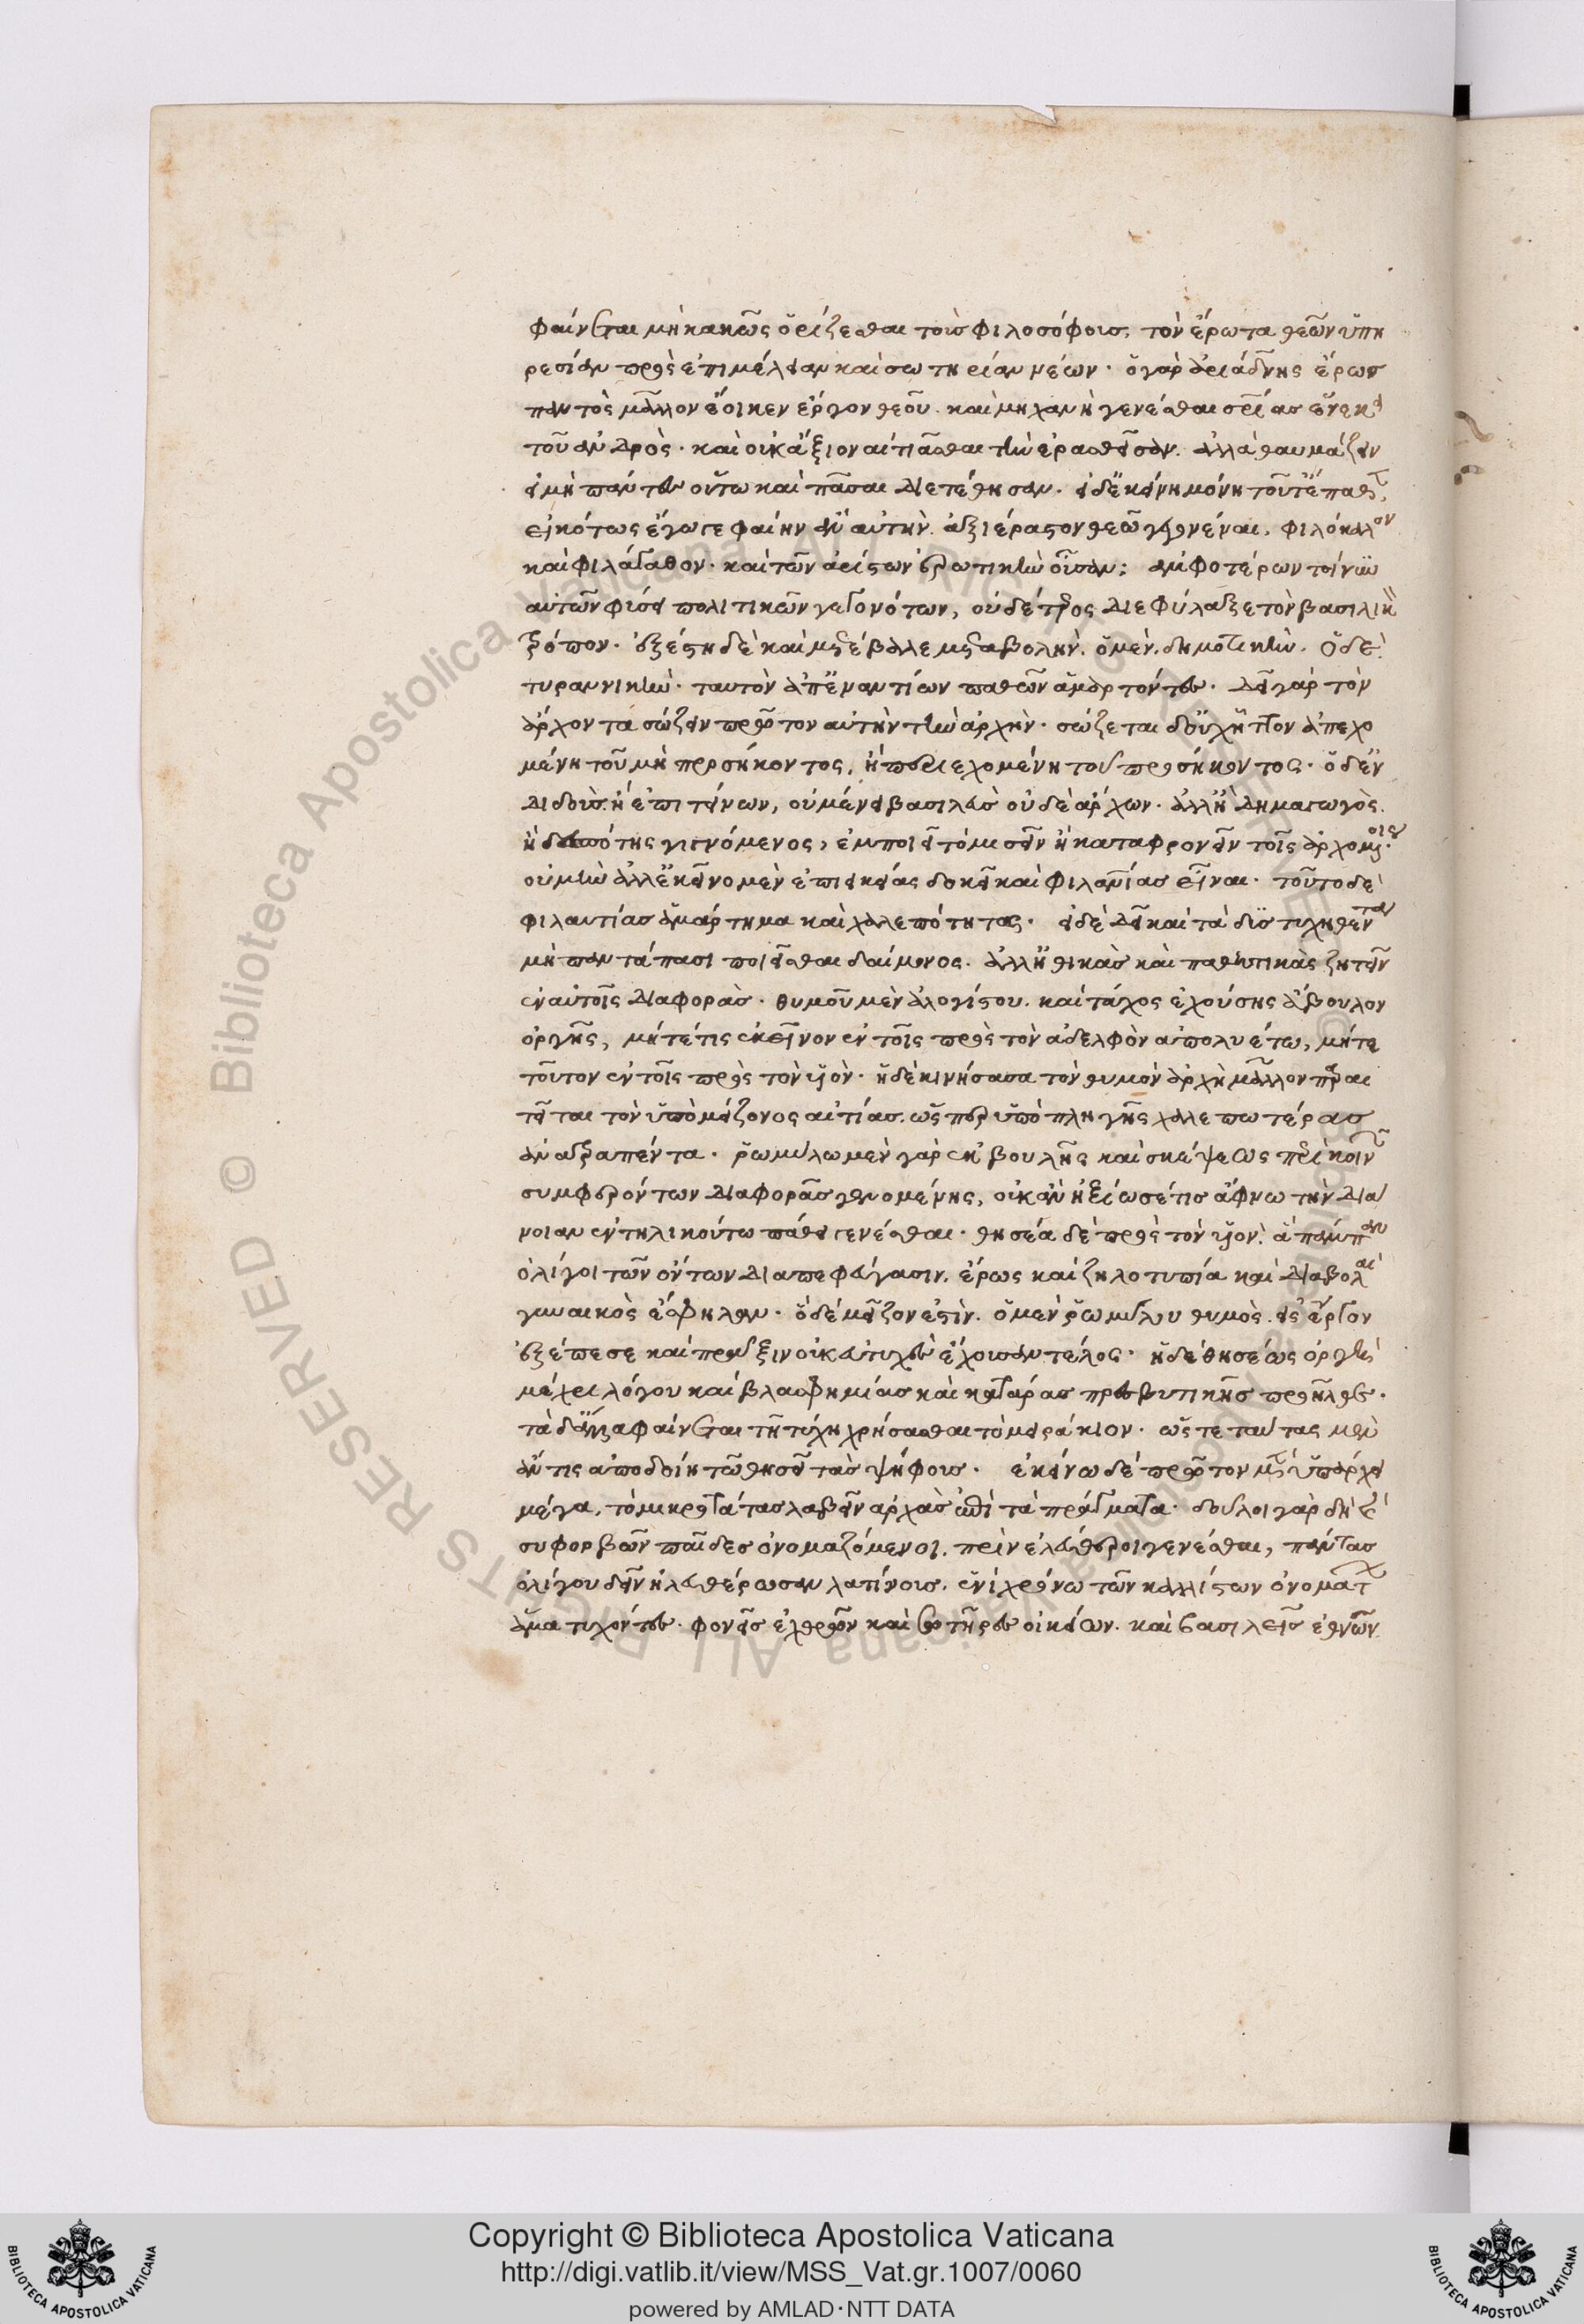 φαίνεται μὴ κακῶς ὁρίζεσθαι τοῖς φιλοσόφοις, τὸν ἔρωτα θεῶν ὑπη
ρεσίαν πρὸς ἐπιμέλειαν καὶ σωτηρίαν νέων· ὁ γὰρ ἀριάδνης ἔρως
παντὸς μᾶλλον ἔοικεν ἔργον θεοῦ. καὶ μηχανὴ γενέσθαι σωτηρίας ἕνεκα
τοῦ ἀνδρός· καὶ οὐκ ἄξιον αἰτιᾶσθαι τὴν ἐρασθεῖσαν. ἀλλὰ θαυμάζειν
εἰ μὴ πάντες οὕτω καὶ πᾶσαι διετέθησαν· εἰ δ' ἐκείνη μόνη τοῦτ' ἔπαθεν,
εἰκότως ἔγωγε φαίην ἂν αὐτὴν ἀξιέραστον θεῷ γεγονέναι. φιλόκαλον
καὶ φιλάγαθον· καὶ τῶν ἀρίστων ἐρωτικὴν οὖσαν; ἀμφοτέρων τοίνυν
αὐτῶν φύσει πολιτικῶν γεγονότων, οὐδέτερος διεφύλαξε τὸν βασιλικὸν
τρόπον· ἐξέστη δὲ καὶ μετέβαλε μεταβολήν. ὁ μὲν, δημοτικήν. ὁ δὲ
τυραννικήν· ταυτὸν ἀπ' ἐναντίων παθῶν ἁμαρτόντες· δεῖ γὰρ τὸν
ἄρχοντα σώζειν πρῶτον αὐτὴν τὴν ἀρχήν· σώζεται δ' οὐχ ἧττον ἀπεχο
μένη τοῦ μὴ προσήκοντος, ἢ περιεχομένη τοῦ προσήκοντος· ὁ δ' ἐν
διδοὺς ἢ ἐπιτείνων, οὐ μένει βασιλεὺς οὐδὲ ἄρχων· ἀλλ' ἢ δημαγωγὸς
ἢ δεσπότης γιγνόμενος, ἐμποιεῖ τὸ μισεῖν ἢ καταφρονεῖν τοῖς ἀρχομένοις·
οὐ μὴν ἀλλ' ἐκεῖνο μὲν ἐπιεικείας δοκεῖ καὶ φιλανθρωπίας εἶναι· τοῦτο δὲ
φιλαυτίας ἁμάρτημα καὶ χαλεπότητος· εἰ δὲ δεῖ καὶ τὰ δυστυχηθέντα
μὴ παντάπασι ποιεῖσθαι δαίμονος· ἀλλ' ἠθικὰς καὶ παθητικὰς ζητεῖν
ἐν αὐτοῖς διαφοράς· θυμοῦ μὲν ἀλογίστου καὶ τάχος ἐχούσης ἄβουλον
ὀργῆς, μήτέ τις ἐκεῖνον ἐν τοῖς πρὸς τὸν ἀδελφὸν ἀπολυέτω, μήτε
τοῦτον ἐν τοῖς πρὸς τὸν υἱόν· ἡ δὲ κινήσασα τὸν θυμὸν ἀρχὴ μᾶλλον παραι
τεῖται τὸν ὑπὸ μείζονος αἰτίας. ὥσπερ ὑπὸ πληγῆς χαλεπωτέρας
ἀνατραπέντα· ῥωμύλῳ μὲν γὰρ ἐκ βουλῆς καὶ σκέψεως περὶ κοινῶν
συμφερόντων διαφορᾶς γενομένης, οὐκ ἂν ἠξίωσέ τις ἄφνω τὴν διά
νοιαν ἐν τηλικούτῳ πάθει γενέσθαι· θησέα δὲ πρὸς τὸν υἱὸν. ἃ πάμπαν
ὀλίγοι τῶν ὄντων διαπεφεύγασιν. ἔρως καὶ ζηλοτυπία καὶ διαβολαὶ
γυναικὸς ἔσφηλαν· ὃ δὲ μεῖζόν ἐστιν. ὁ μὲν ῥωμύλου θυμὸς εἰς ἔργον
ἐξέπεσε καὶ πρᾶξιν οὐκ εὐτυχὲς ἔχουσαν τέλος· ἡ δὲ θησέως ὀργὴ
μέχρι λόγου καὶ βλασφημίας καὶ κατάρας πρεσβυτικῆς προῆλθε·
τὰ δ' ἄλλα φαίνεται τῇ τύχῃ χρήσασθαι τὸ μειράκιον· ὥστε ταύτας μὲν
ἄν τις ἀποδοίη τῷ θησεῖ τὰς ψήφους· ἐκείνῳ δὲ πρῶτον μὲν ὑπάρχει
μέγα, τὸ μικροτάτας λαβεῖν ἀρχὰς ἐπὶ τὰ πράγματα· δοῦλοι γὰρ δὴ καὶ
συφορβῶν παῖδες ὀνομαζόμενοι. πρὶν ἐλεύθεροι γενέσθαι, πάντας
ὀλίγου δεῖν ἠλευθέρωσαν λατίνους. ἑνὶ χρόνῳ τῶν καλλίστων ὀνομάτων
ἅμα τυχόντες· φονεῖς ἐχθρῶν καὶ σωτῆρες οἰκείων. καὶ βασιλεῖς ἐθνῶν
Copyright © Biblioteca Apostolica Vaticana
http://digi.vatlib.it/view/MSS_Vat.gr.1007/0060
powered by AMLAD・NTT DATA